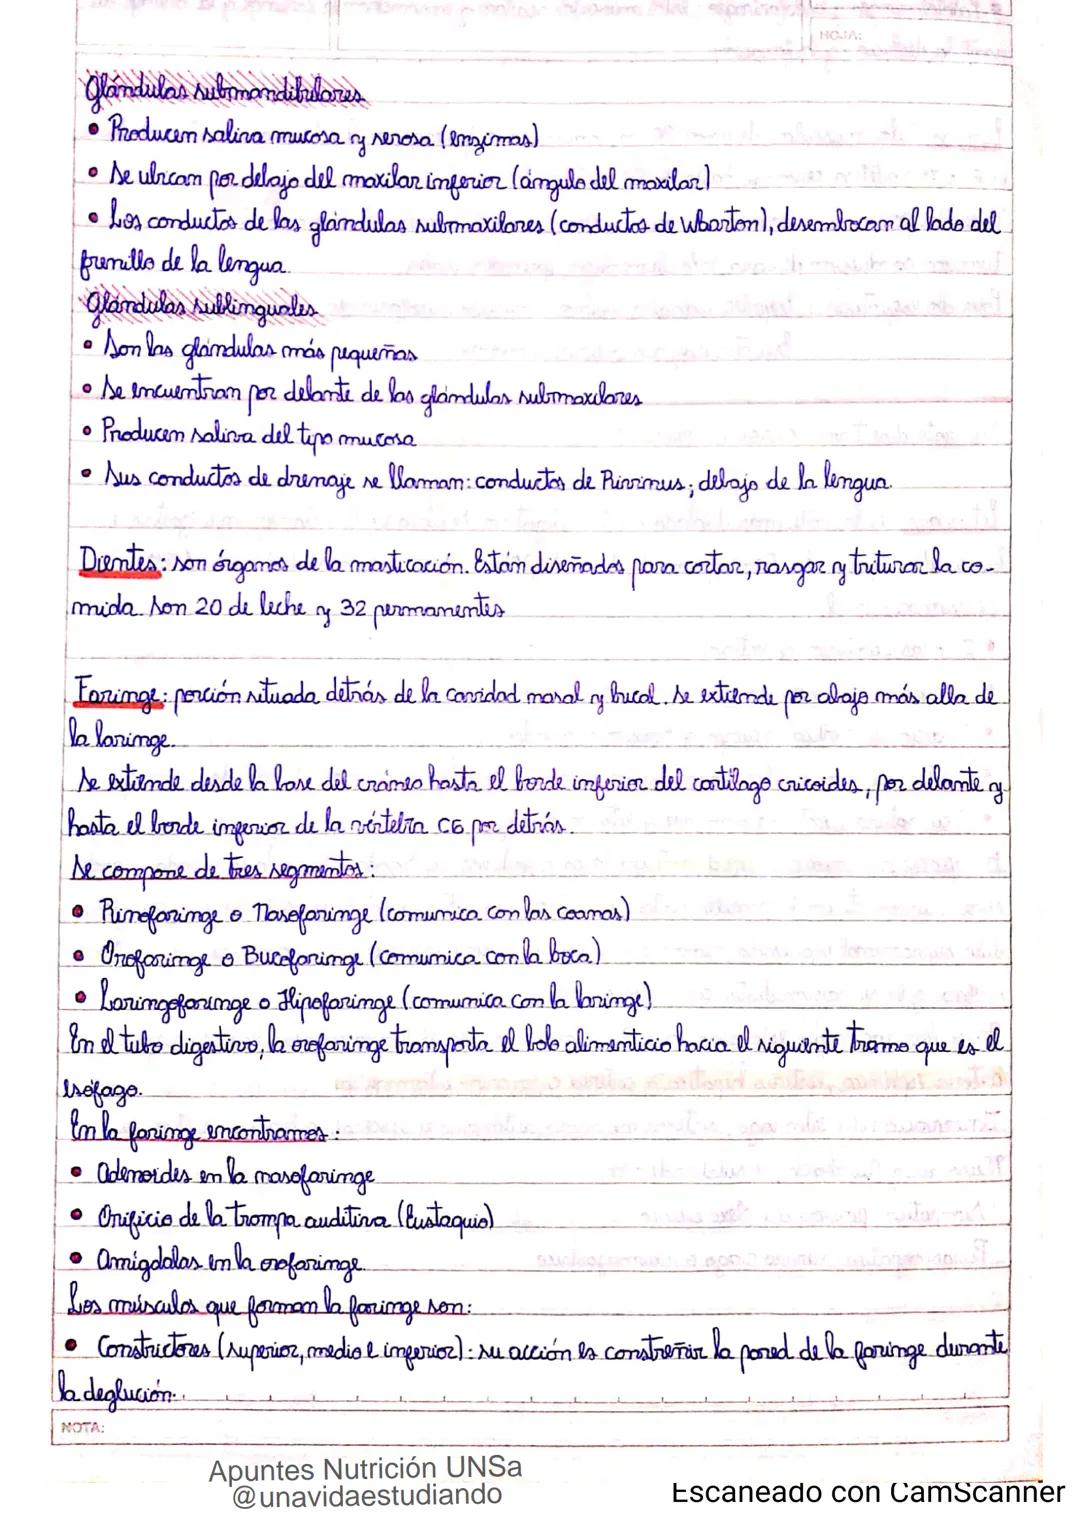 HOJA:
Glándulas submandibulares
• Producen saliva mucosa y serosa (enzimas)
• Se ubican por debajo del maxilar inferior (ángulo del maxilar)
• Los conductos de las glándulas submaxilares (conductos de Wharton), desembocan al lado del
frenillo de la lengua.
Glándulas sublinguales
• Son las glándulas más pequeñas
• Se encuentran por delante de las glándulas submaxilares
• Producen saliva del tipo mucosa
• Sus conductos de drenaje se llaman: conductos de Rivinus; debajo de la lengua.
Dientes: son órganos de la masticación. Están diseñados para cortar, rasgar y triturar la co-
mida. Son 20 de leche y 32 permanentes
Faringe: porción situada detrás de la cavidad nasal y bucal. Se extiende por abajo más alla de
la laringe.
Se extiende desde la base del cráneo hasta el borde inferior del cartílago cricoides, por delante y
hasta el borde inferior de la vértebra C6 por detrás.
Se compone de tres segmentos:
• Rinofaringe o Nasofaringe (comunica con las coanas)
• Orofaringe o Bucofaringe (comunica con la boca)
• Laringofaringe o Hipofaringe (comunica con la laringe)
En el tubo digestivo, la orofaringe transporta el bolo alimenticio hacia el siguiente tramo que es el
esófago.
En la faringe encontramos:
• Adenoides en la nasofaringe
• Orificio de la trompa auditiva (Eustaquio)
• Amígdalas en la orofaringe.
Los músculos que forman la faringe son:
• Constructores (superior, medio e inferior): su acción es constreñir la pared de la faringe durante
la deglución.
NOTA:
Apuntes Nutrición UNSa
@unavidaestudiando
Escaneado con CamScanner